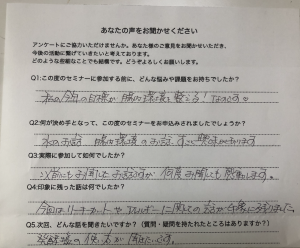 あなたの声をお聞かせください
アンケートにご協力いただけませんか。あなた様のご意見をお聞かせいただき、
今後の活動に繋げていきたいと考えております。
どのような些細なことでも結構です。どうぞよろしくお願いします。
Q1:この度のセミナーに参加する前に、どんな悩みや課題をお持ちでしたか?
私の今年の目標が 腸内環境を整える!なので。
Q2:何が決め手となって、この度のセミナーをお申込みされましたでしょうか?
水のお話 腸内環境のお話
Q3:実際に参加して如何でしたか?
以前にもお聞きしたお話ですが 何度お聞きしても感動します。
Q4:印象に残った話は何でしたか?
今回はリーキーガットやアレルギーに関しての話が印象に残りました。
Q5.次回、どんな話を聞きたいですか?(質問・疑問を持たれたところはありますか?)
の使い方が聞きたいです。